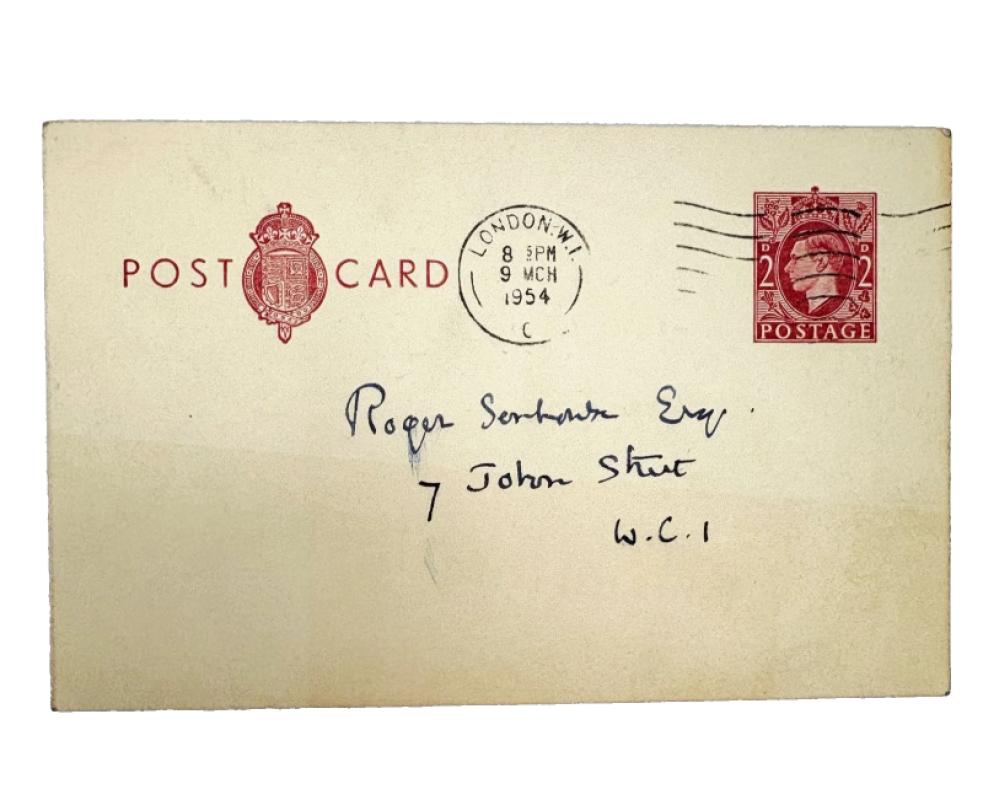 POST CARD
LONDON.W.1.
8 15 PM
9 MCH
1954
C
D D
2 2
POSTAGE
Roger Senhouse Esq.
7 John Street
W.C.1